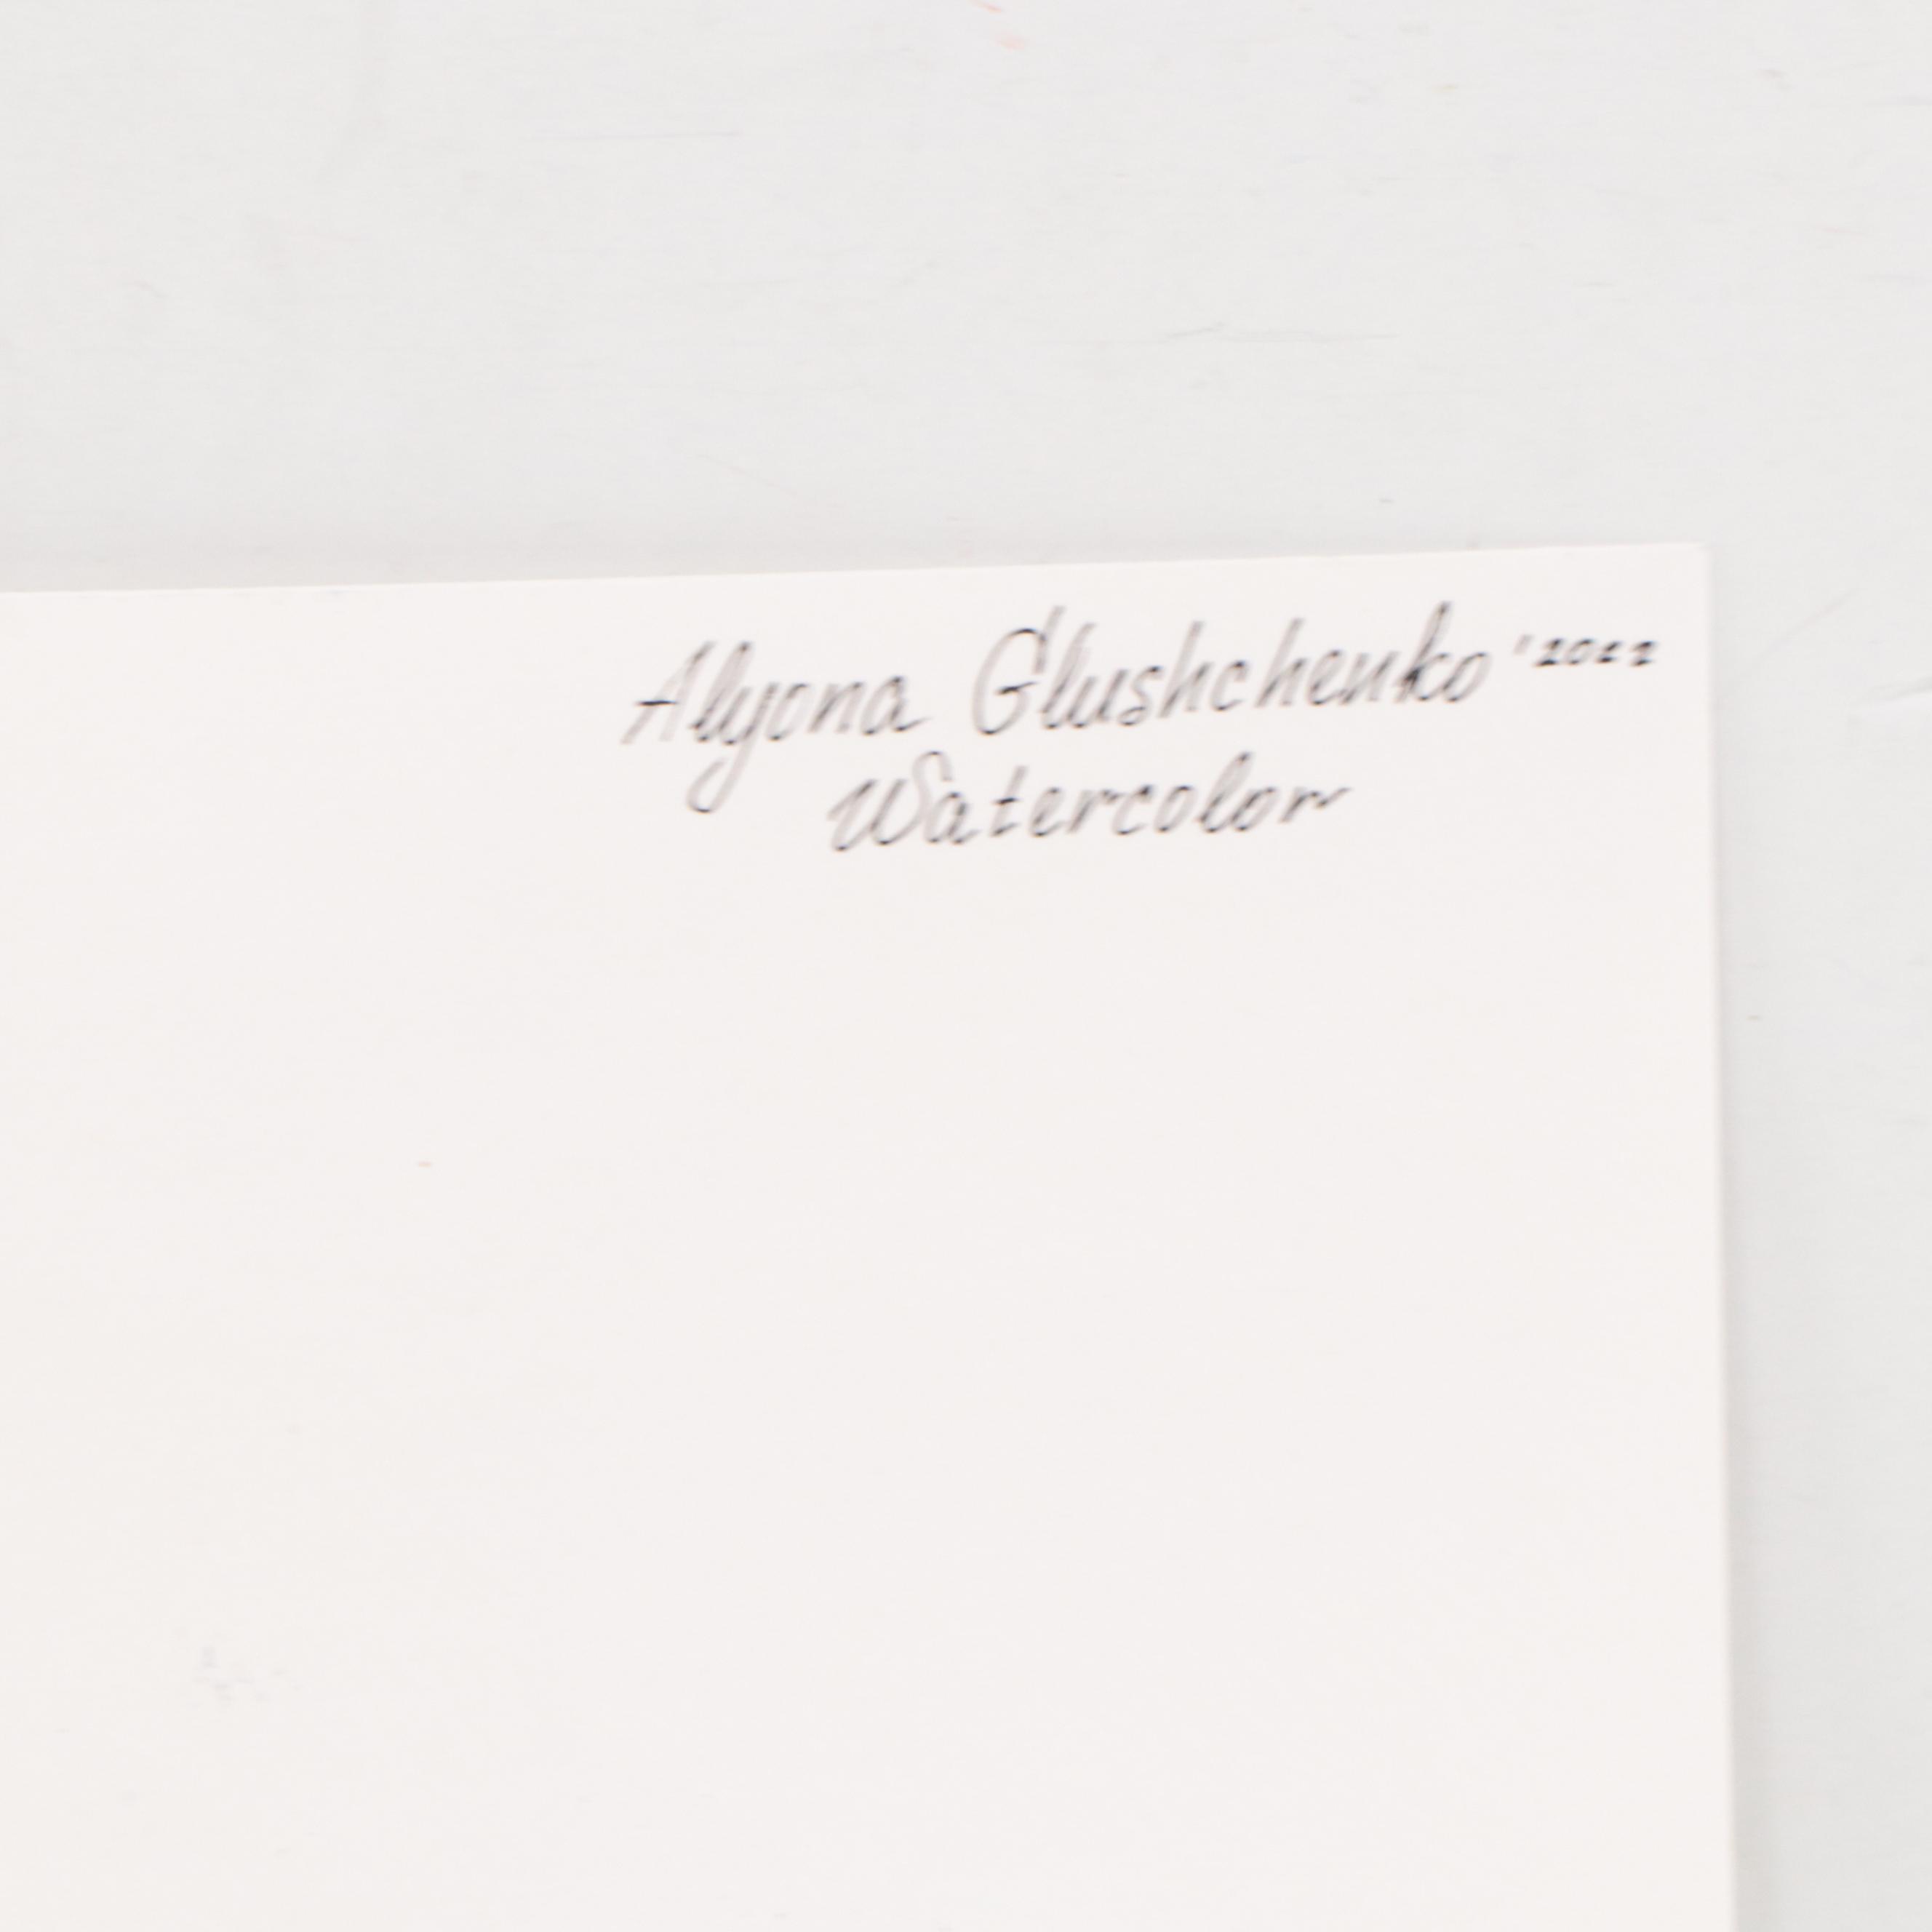 Alyona Glushchenko '2022
Watercolor